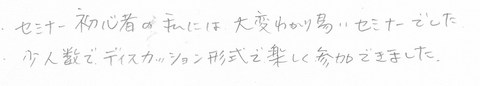 ・セミナー初心者の私には大変わかり易いセミナーでした
・少人数でディスカッション形式で楽しく参加できました。